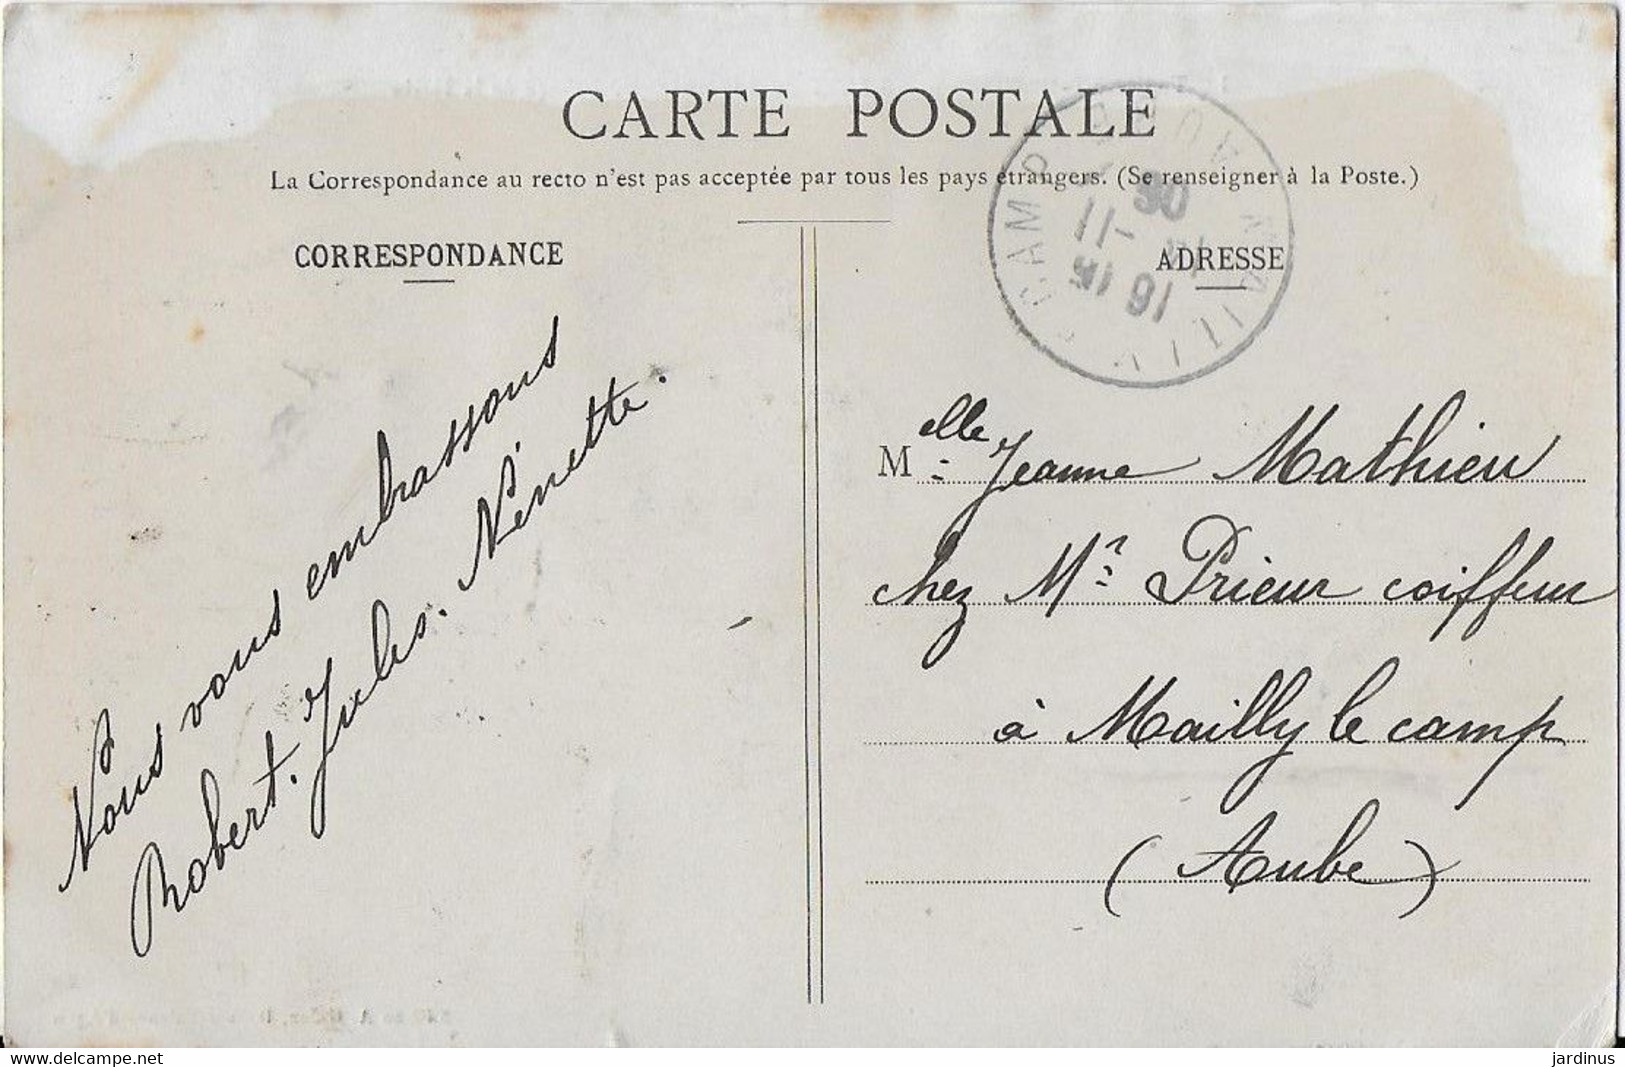 CARTE POSTALE
La Correspondance au recto n'est pas acceptée par tous les pays étrangers. (Se renseigner à la Poste.)
CORRESPONDANCE
Nous vous embrassons
Robert. Jules. Nénette.
ADRESSE
CAMP
Melle Jeanne Mathieu
chez Mr Prieur coiffeur
à Mailly le camp
(Aube)
www.delcampe.net
jardinus